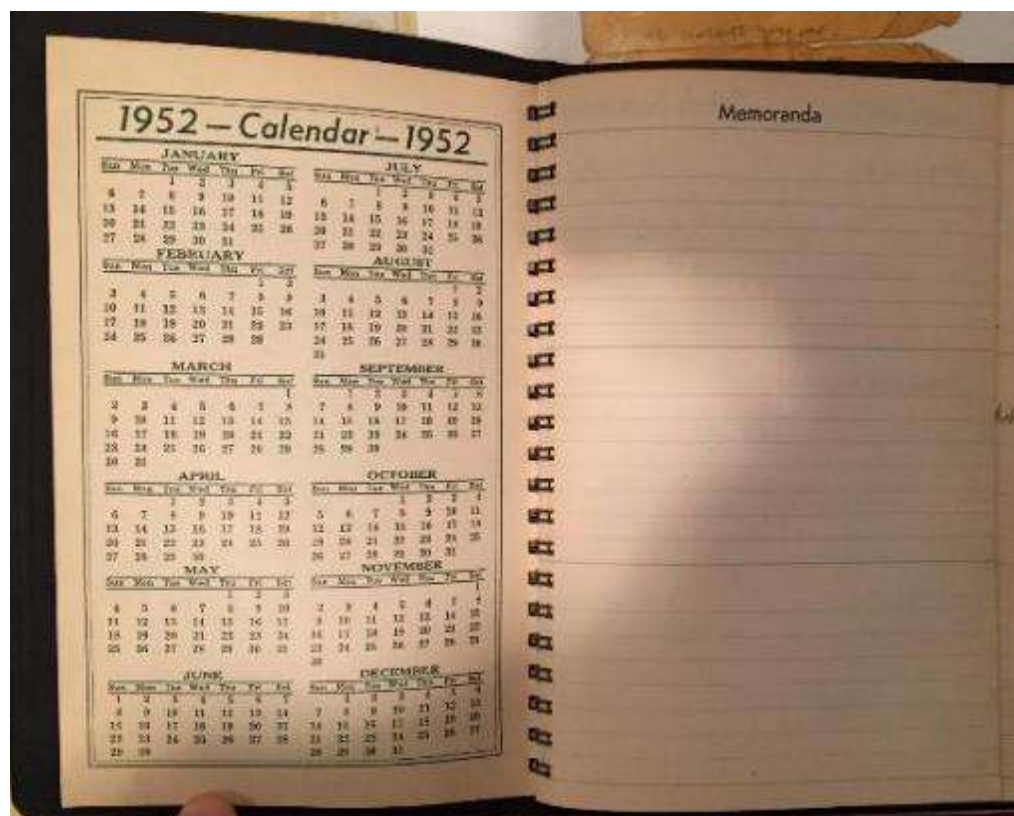 1952 — Calendar — 1952
JANUARY
Sun Mon Tue Wed Thu Fri Sat
1 2 3 4 5
6 7 8 9 10 11 12
13 14 15 16 17 18 19
20 21 22 23 24 25 26
27 28 29 30 31
FEBRUARY
Sun Mon Tue Wed Thu Fri Sat
1 2
3 4 5 6 7 8 9
10 11 12 13 14 15 16
17 18 19 20 21 22 23
24 25 26 27 28 29
MARCH
Sun Mon Tue Wed Thu Fri Sat
1
2 3 4 5 6 7 8
9 10 11 12 13 14 15
16 17 18 19 20 21 22
23 24 25 26 27 28 29
30 31
APRIL
Sun Mon Tue Wed Thu Fri Sat
1 2 3 4 5
6 7 8 9 10 11 12
13 14 15 16 17 18 19
20 21 22 23 24 25 26
27 28 29 30
MAY
Sun Mon Tue Wed Thu Fri Sat
1 2 3
4 5 6 7 8 9 10
11 12 13 14 15 16 17
18 19 20 21 22 23 24
25 26 27 28 29 30 31
JUNE
Sun Mon Tue Wed Thu Fri Sat
1 2 3 4 5 6 7
8 9 10 11 12 13 14
15 16 17 18 19 20 21
22 23 24 25 26 27 28
29 30
JULY
Sun Mon Tue Wed Thu Fri Sat
1 2 3 4 5
6 7 8 9 10 11 12
13 14 15 16 17 18 19
20 21 22 23 24 25 26
27 28 29 30 31
AUGUST
Sun Mon Tue Wed Thu Fri Sat
1 2
3 4 5 6 7 8 9
10 11 12 13 14 15 16
17 18 19 20 21 22 23
24 25 26 27 28 29 30
31
SEPTEMBER
Sun Mon Tue Wed Thu Fri Sat
1 2 3 4 5 6
7 8 9 10 11 12 13
14 15 16 17 18 19 20
21 22 23 24 25 26 27
28 29 30
OCTOBER
Sun Mon Tue Wed Thu Fri Sat
1 2 3 4
5 6 7 8 9 10 11
12 13 14 15 16 17 18
19 20 21 22 23 24 25
26 27 28 29 30 31
NOVEMBER
Sun Mon Tue Wed Thu Fri Sat
1
2 3 4 5 6 7 8
9 10 11 12 13 14 15
16 17 18 19 20 21 22
23 24 25 26 27 28 29
30
DECEMBER
Sun Mon Tue Wed Thu Fri Sat
1 2 3 4 5 6
7 8 9 10 11 12 13
14 15 16 17 18 19 20
21 22 23 24 25 26 27
28 29 30 31
Memoranda